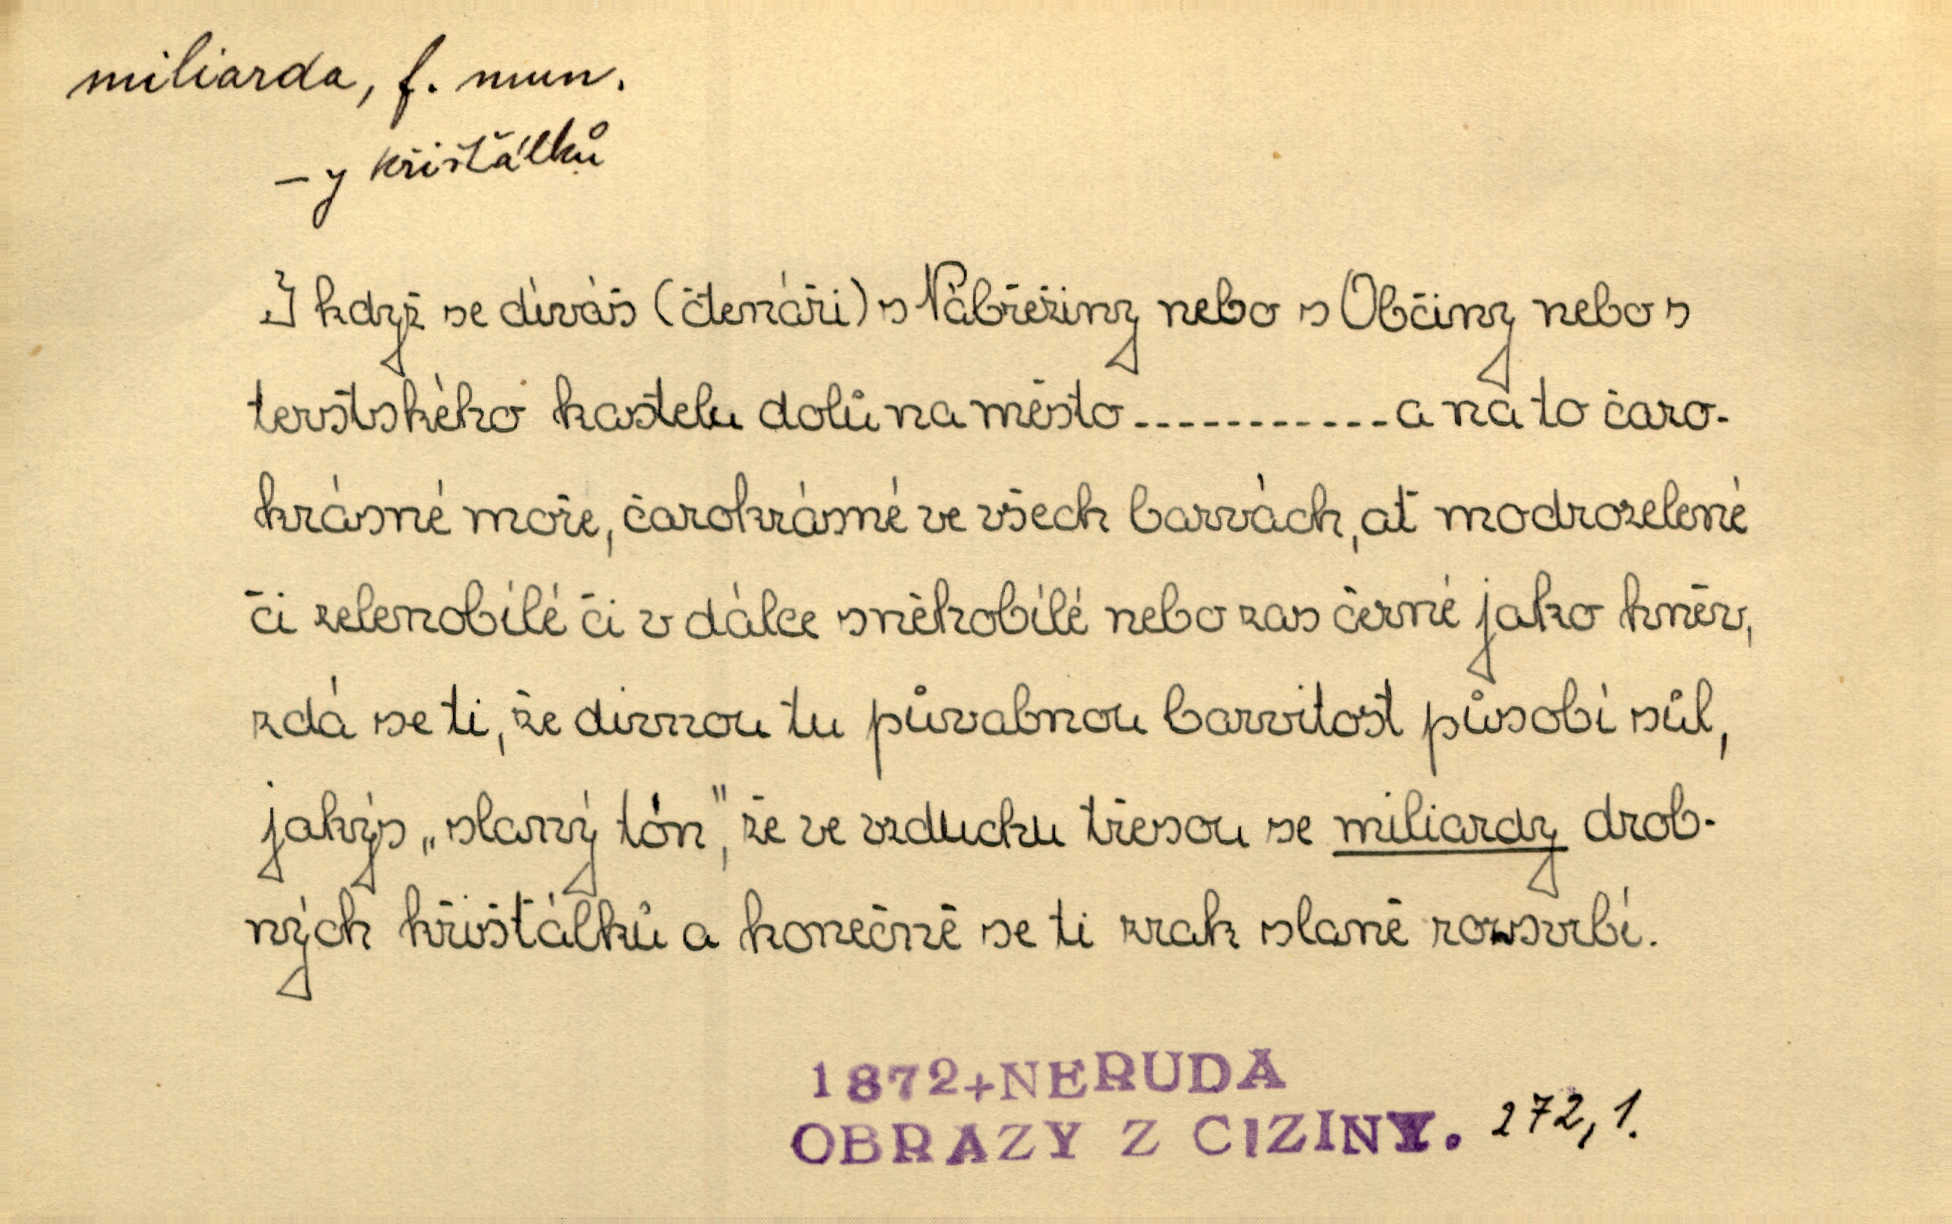 miliarda, f. num.
– y křišťálků
I když se díváš (čtenáři) s Nábřežiny nebo s Občiny nebo s
terstského kastelu dolů na město ------------ a na to čaro-
krásné moře, čarokrásné ve všech barvách, ať modrozelené
či zelenobílé či v dálce sněhobílé nebo zas černé jako hněv,
zdá se ti, že divnou tu půvabnou barvitost působí sůl,
jakýs „slaný tón", že ve vzduchu třesou se miliardy drob-
ných křišťálků a konečně se ti zrak slaně rozsvrbí.
1872+NERUDA
OBRAZY Z CIZINY. 272, 1.